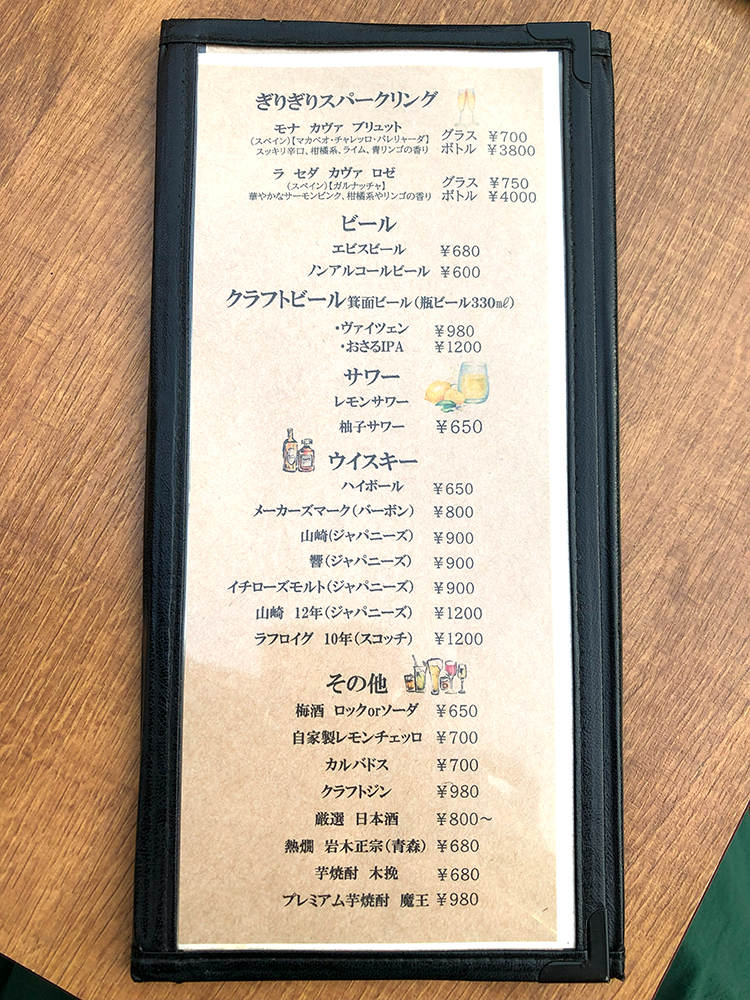 ぎりぎりスパークリング
モナ カヴァ ブリュット
(スペイン)【マカベオ・チャレッロ・パレリャーダ】 グラス ¥700
スッキリ辛口、柑橘系、ライム、青リンゴの香り ボトル ¥3800
ラ セダ カヴァ ロゼ
(スペイン)【ガルナッチャ】 グラス ¥750
華やかなサーモンピンク、柑橘系やリンゴの香り ボトル ¥4000
ビール
エビスビール ¥680
ノンアルコールビール ¥600
クラフトビール 箕面ビール(瓶ビール330㎖)
・ヴァイツェン ¥980
・おさるIPA ¥1200
サワー
レモンサワー
柚子サワー ¥650
ウイスキー
ハイボール ¥650
メーカーズマーク(バーボン) ¥800
山崎(ジャパニーズ) ¥900
響(ジャパニーズ) ¥900
イチローズモルト(ジャパニーズ) ¥900
山崎 12年(ジャパニーズ) ¥1200
ラフロイグ 10年(スコッチ) ¥1200
その他
梅酒 ロックorソーダ ¥650
自家製レモンチェッロ ¥700
カルバドス ¥700
クラフトジン ¥980
厳選 日本酒 ¥800~
熱燗 岩木正宗(青森) ¥680
芋焼酎 木挽 ¥680
プレミアム芋焼酎 魔王 ¥980